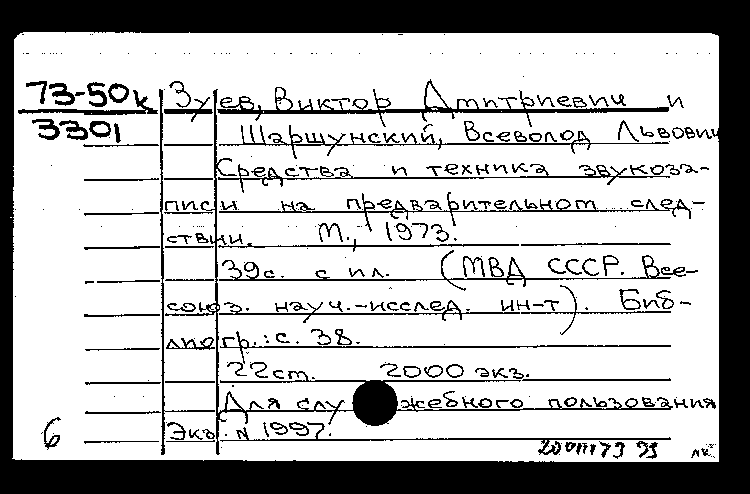 73-50к Зуев, Виктор Дмитриевич и
3301 Шаршунский, Всеволод Львович
Средства и техника звукоза-
писи на предварительном след-
ствии. М., 1973.
39с. с ил. (МВД СССР. Все-
союз. науч.-исслед. ин-т). Биб-
лиогр.: с. 38.
22см. 2000 экз.
Для служебного пользования
6 Экз. N 1997.
лк